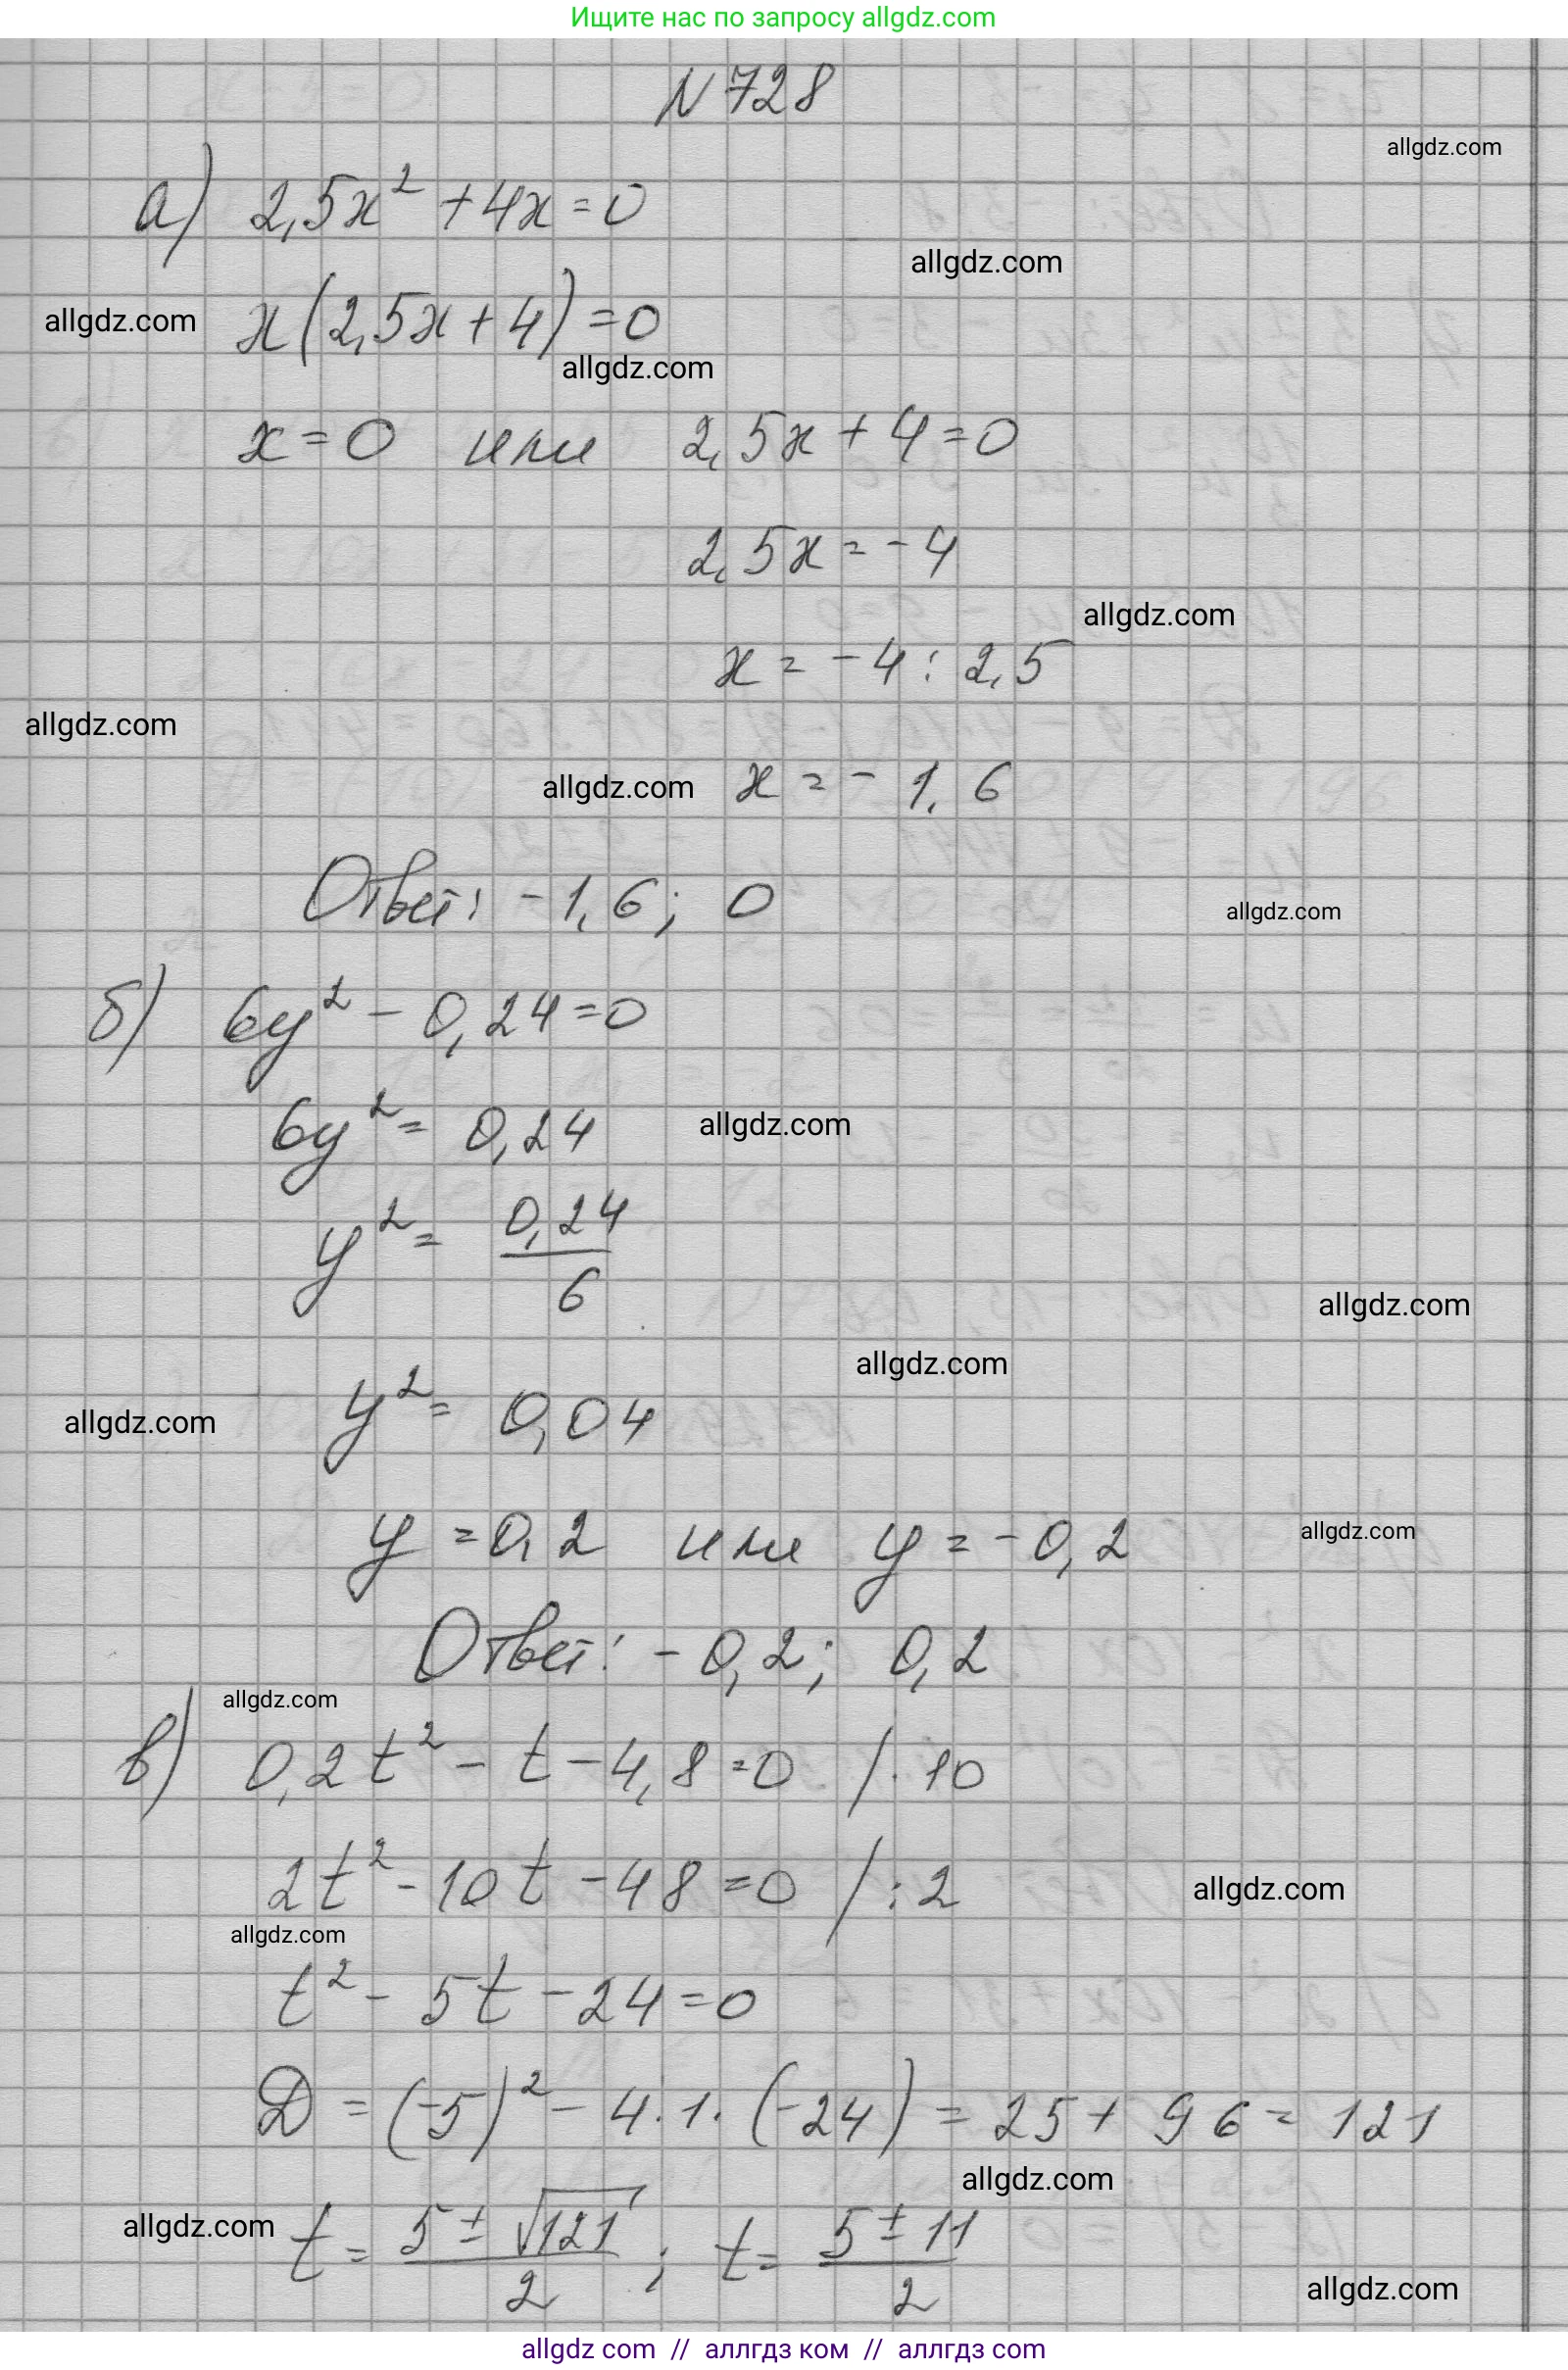 Ищите нас по запросу allgdz.com
N 728
allgdz.com
а) 2,5x² + 4x = 0
allgdz.com
allgdz.com
x(2,5x + 4) = 0
allgdz.com
x = 0 или 2,5x + 4 = 0
2,5x = -4
allgdz.com
x = -4 : 2,5
allgdz.com
allgdz.com
x = -1,6
Ответ: -1,6; 0
allgdz.com
б) 6y² - 0,24 = 0
6y² = 0,24
allgdz.com
y² = 0,24/6
allgdz.com
allgdz.com
y² = 0,04
allgdz.com
y = 0,2 или y = -0,2
allgdz.com
Ответ: -0,2; 0,2
allgdz.com
в) 0,2t² - t - 4,8 = 0 / · 10
2t² - 10t - 48 = 0 / : 2
allgdz.com
allgdz.com
t² - 5t - 24 = 0
D = (-5)² - 4 · 1 · (-24) = 25 + 96 = 121
allgdz.com
allgdz.com
t = (5 ± √121)/2 ; t = (5 ± 11)/2
allgdz.com
allgdz com // аллгдз ком // аллгдз com